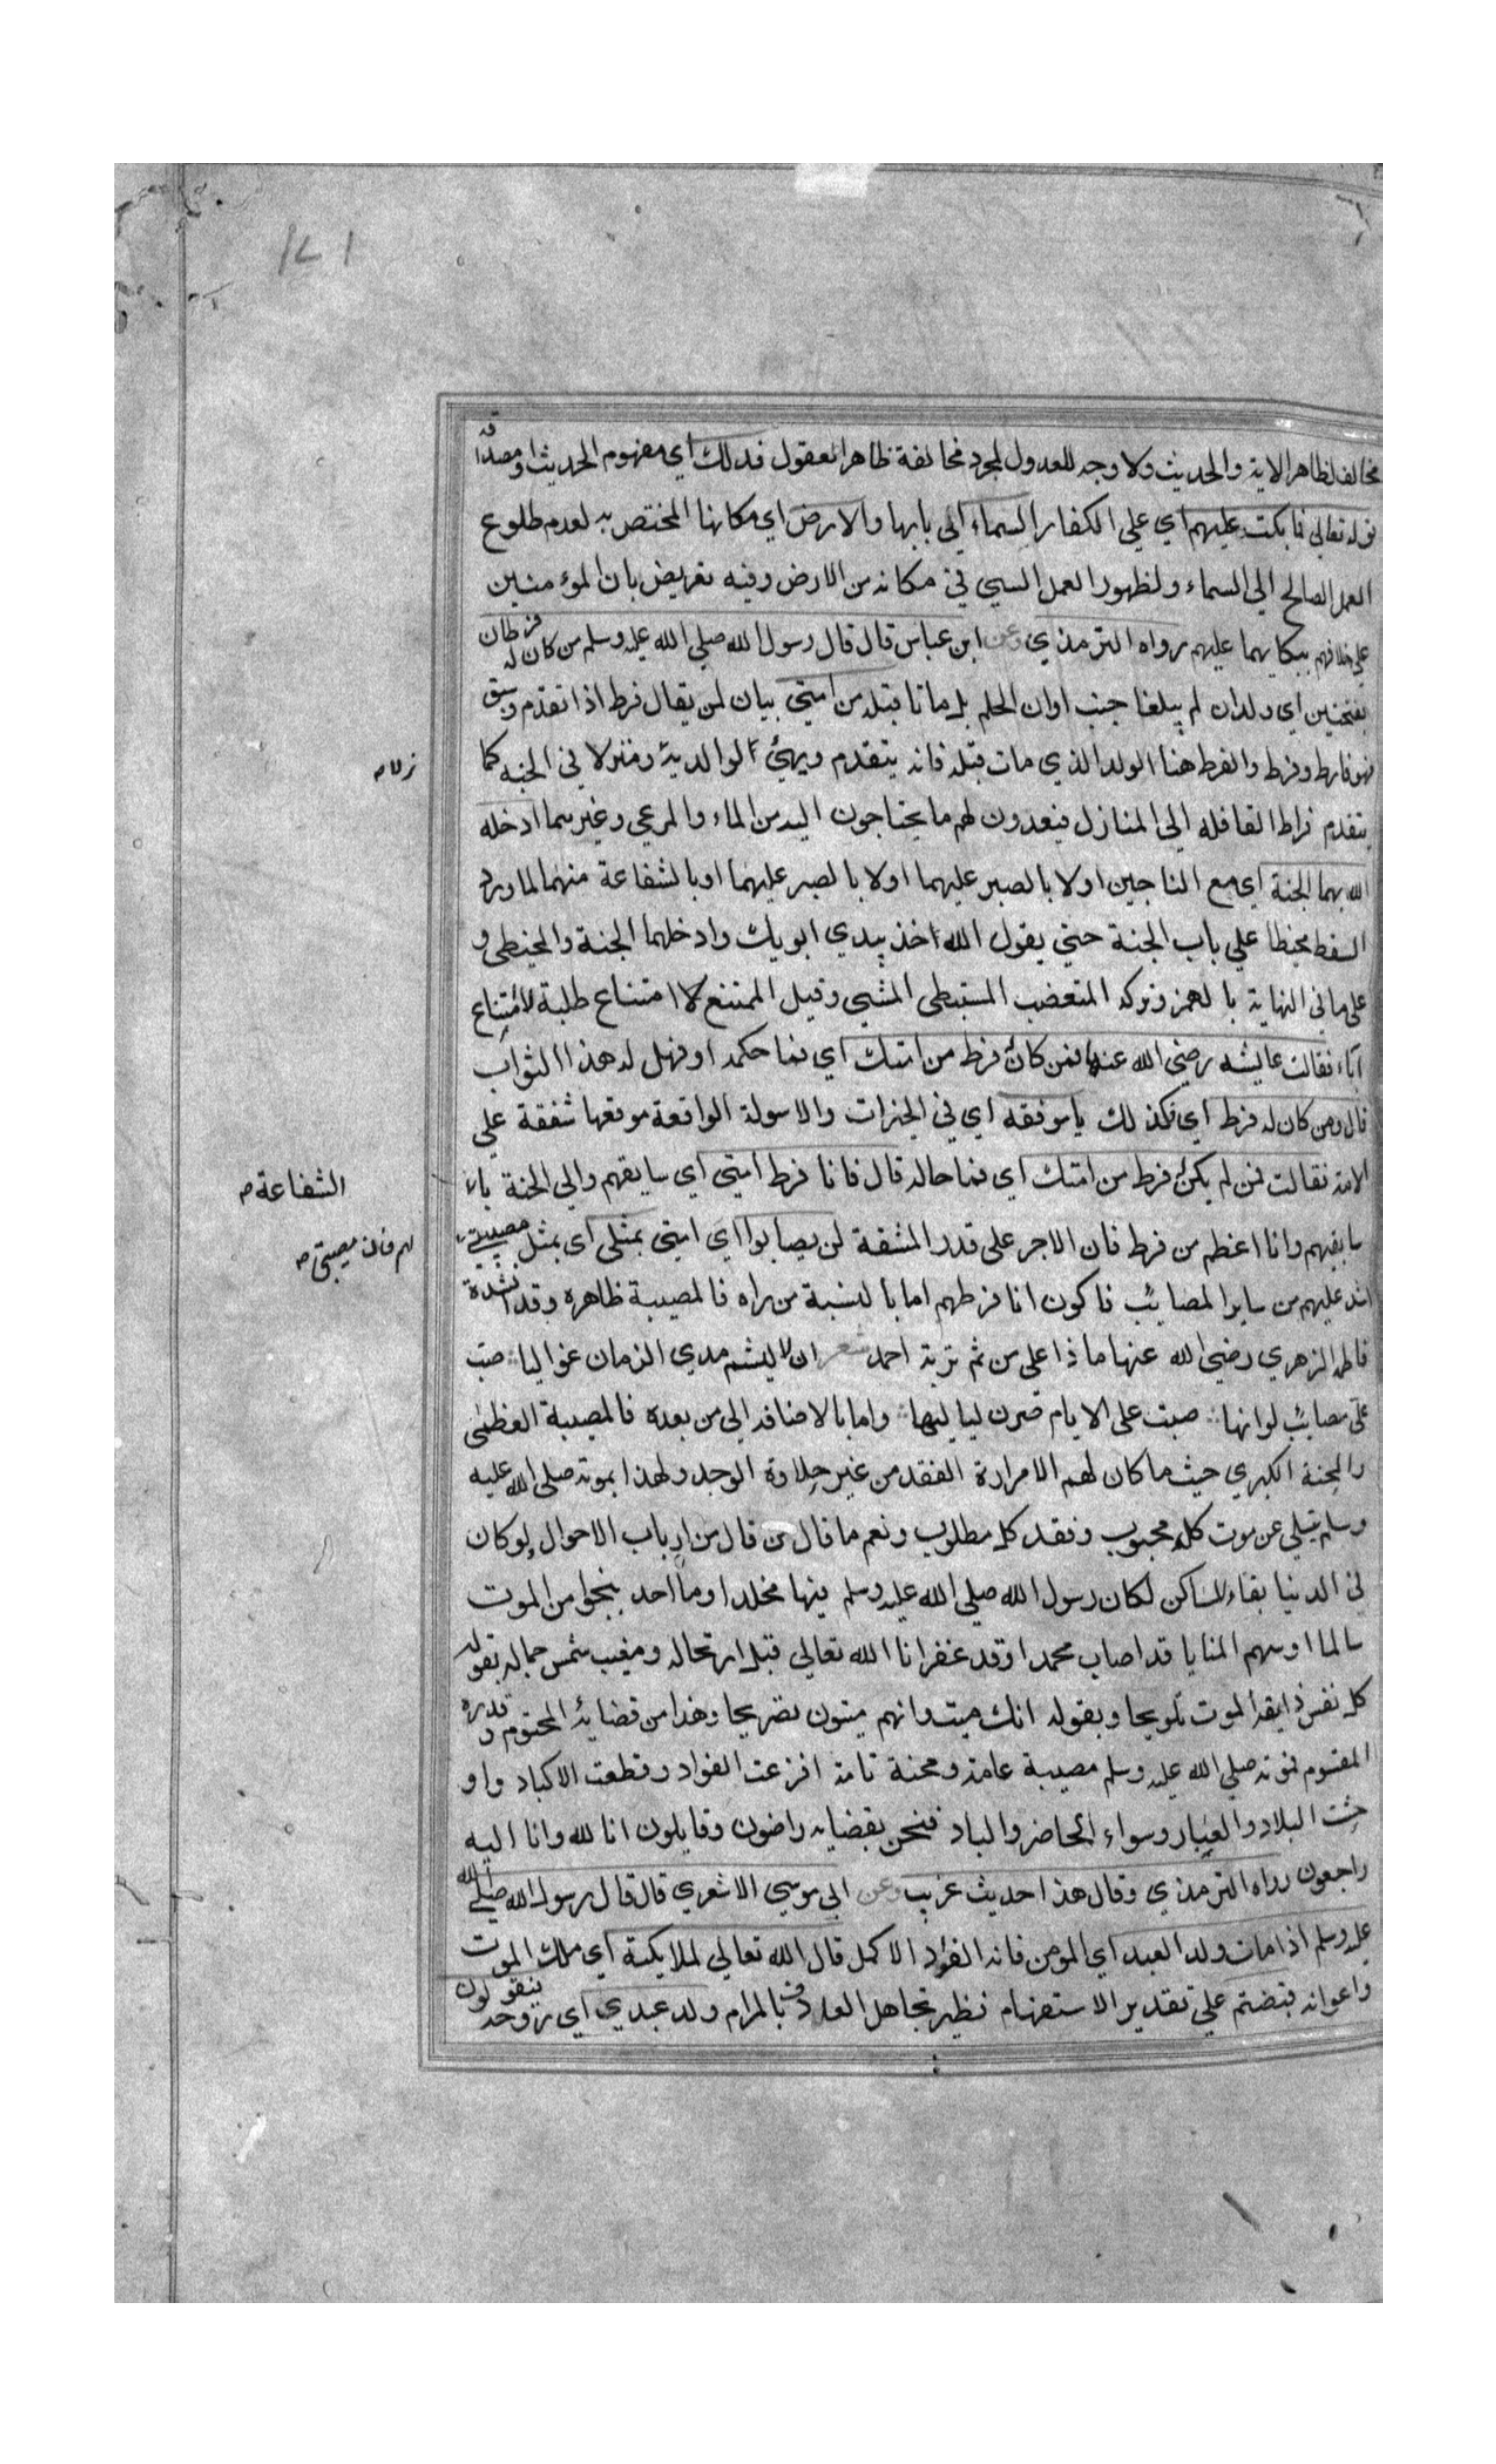 ١٧١
مخالف لظاهر الاية والحديث ولا وجه للعدول لمجرد مخالفة ظاهر العقول فدلك اي مفهوم الحديث او مصداقه
قوله تعالى فما بكت عليهم اي علي الكفار السماء اي بابها والارض اي مكانها المختص به لعدم طلوع
العمل الصالح الي السماء ولظهور العمل السيي في مكانه من الارض وفيه تعريض بان المؤمنين
علي خلافهم ببكايهما عليهم رواه الترمذي وعن ابن عباس قال قال رسول الله صلي الله عليه وسلم من كان له فرطان
بفتحتين اي ولدان لم يبلغا اوان الحلم بل ماتا قبله من امتي بيان لمن يقال فرط اذا تقدم وسبق
فهو فارط وفرط والفرط هنا الولد الذي مات قبله فانه يتقدم ويهيئ لوالديه ومنزلا في الجنه كما
يتقدم فراط القافله الي المنازل فيعدون لهم ما يحتاجون اليه من الماء والمرعي وغيرهما ادخله
الله بهما الجنة اي مع الناجين اولا بالصبر عليهما او بالشفاعة منهما لما ورد
السقط محبنطا علي باب الجنة حتي يقول الله اخذ بيدي ابويك وادخلهما الجنة والمحبنطي و
علي ما في النهاية بالهمز وتركه المتغضب المستبطي المشي وقيل الممتنع لا امتناع طلبة لا امتناع
اباء فقالت عايشه رضي الله عنها فمن كان فرط من امتك اي فما حكمه او فهل له هذا الثواب
قال ومن كان له فرط اي فكذلك يا موفقه اي في الخيرات والاسولة الواقعة موقعها شفقة علي
الامة فقالت فمن لم يكن فرط من امتك اي فما حاله قال فانا فرط امتي اي سابقهم والي الجنة با
سابقهم وانا اعظم من فرط فان الاجر على قدر المشقة لن يصابوا اي امتي بمثلي اى بمثل مصيبتي
اشد عليهم من ساير المصايب فاكون انا فرطهم اما بالنسبة من راه فالمصيبة ظاهره وقد انشدة
فاطمه الزهري رضي الله عنها ماذا على من شم تربة احمد شعر ان لا يشم مدي الزمان غواليا صبت
على مصائب لو انها صبت على الايام صرن لياليها واما بالاضافه الي من بعده فالمصيبة العظمى
والمحنة الكبري حيث ما كان لهم الا مرارة الفقد من غير حلاوة الوجد ولهذا بموته صلى الله عليه
وسلم يتسلى عن موت كل محبوب وفقد كل مطلوب ونعم ما قال من قال من ارباب الاحوال ولو كان
في الدنيا بقاء لساكن لكان رسول الله صلي الله عليه وسلم فيها مخلدا وما احد ينجوا من الموت
سالما وسهم المنايا قد اصاب محمدا وقد الله تعالي قبل ارتحاله ومغيب شمس جماله بقوله
كل نفس ذايقة الموت تلويحا وبقوله انك ميت وانهم ميتون تصريحا وهذا من قضائه المحتوم وقدره
المقسوم فموته صلي الله عليه وسلم مصيبة عامة ومحنة تامة افزعت الفواد وقطعت الاكباد واو
حشت البلاد والعباد وسواء الحاضر والباد فنحن بقضايه راضون وقايلون انا لله وانا اليه
راجعون رواه الترمذي وقال هذا حديث غريب وعن ابي موسي الاشعري قال قال رسول الله صلي الله
عليه وسلم اذا مات ولد العبد اي المومن فانه الفرد الاكمل قال الله تعالي لملايكته اي ملك الموت
واعوانه قبضتم علي تقدير الاستفهام نظير تجاهل العارف بالمرام ولد عبدي اي روحه فيقولون
الشفاعة صـ
لهم فان مصيبتي صـ